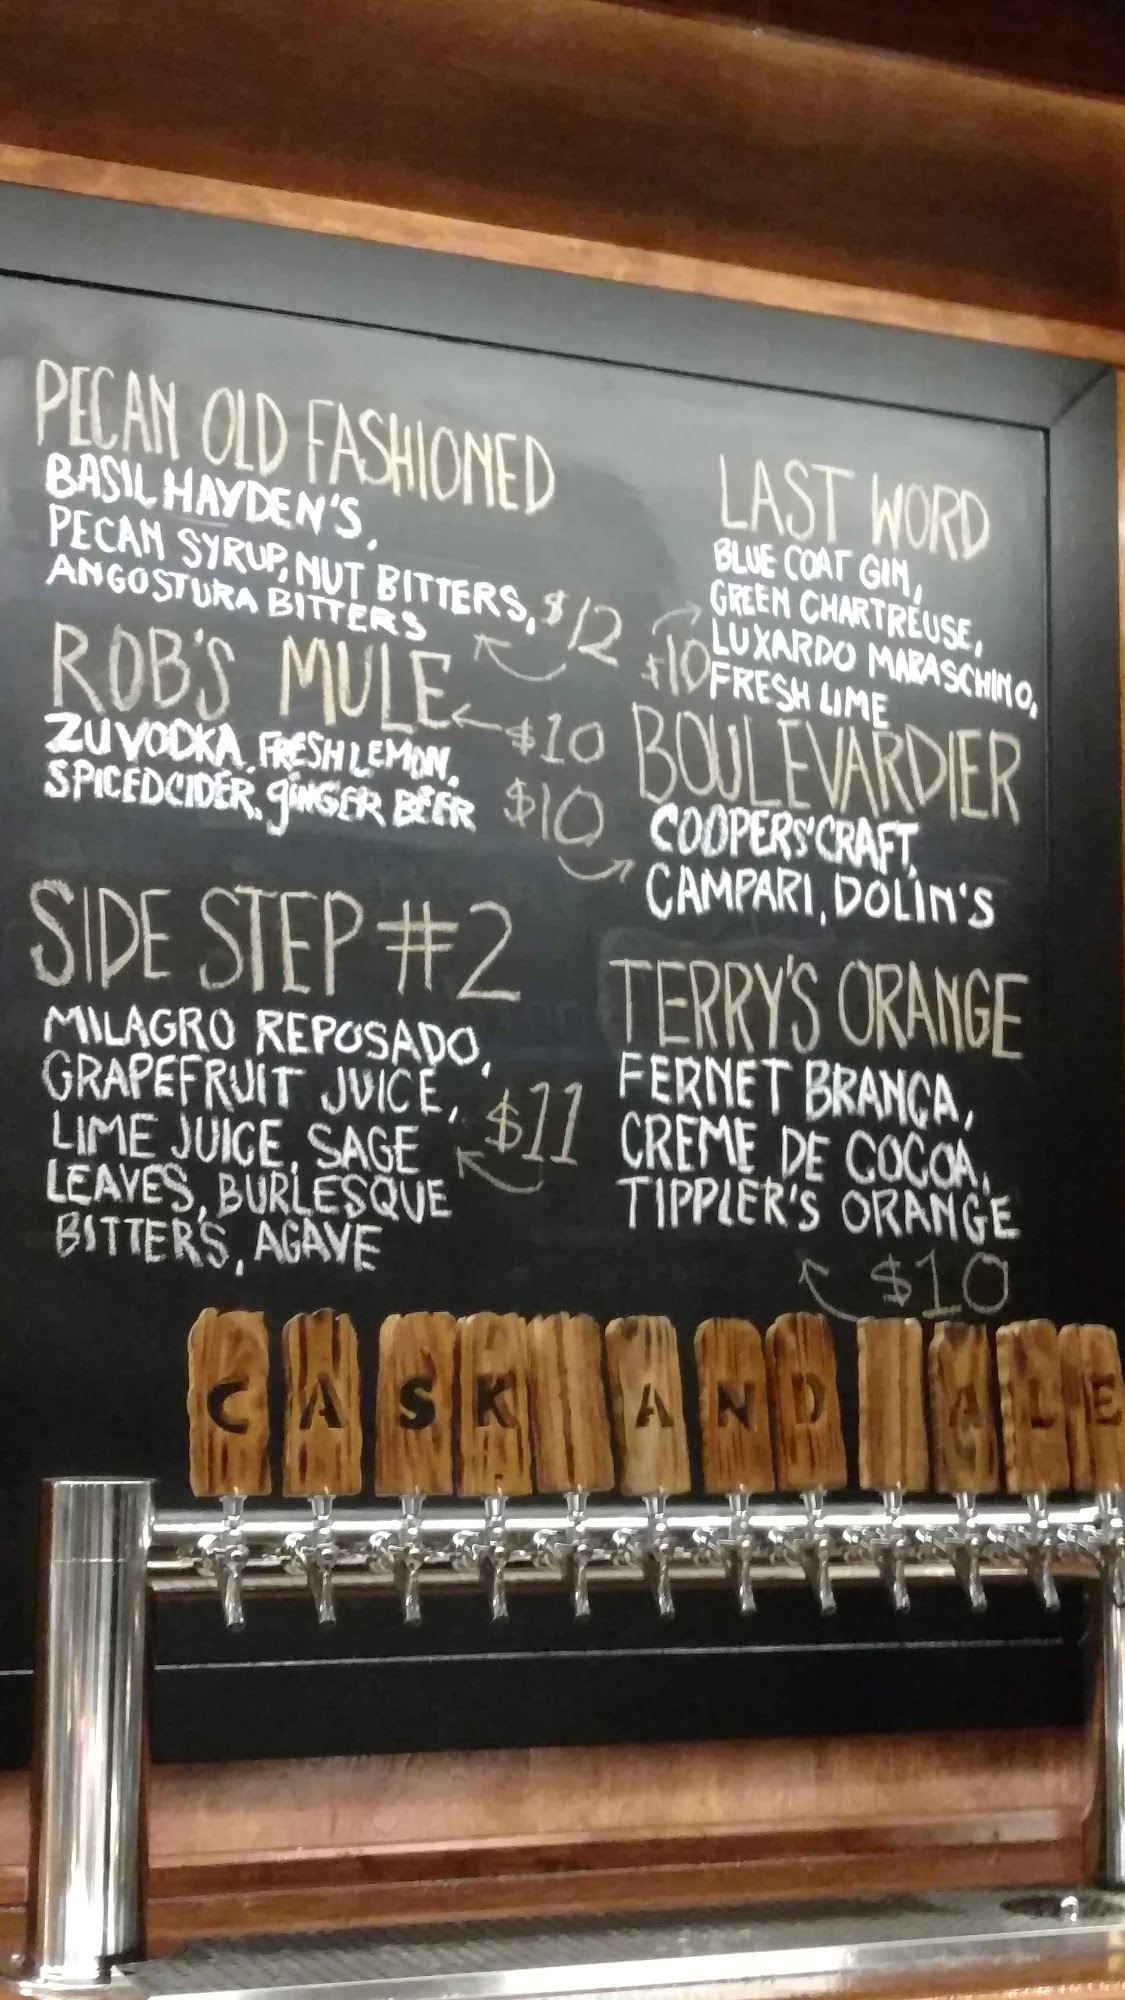 PECAN OLD FASHIONED
BASIL HAYDEN'S,
PECAN SYRUP, NUT BITTERS,
ANGOSTURA BITTERS
$12
ROB'S MULE
$10
ZU VODKA, FRESH LEMON,
SPICED CIDER, GINGER BEER
SIDE STEP #2
MILAGRO REPOSADO,
GRAPEFRUIT JUICE,
LIME JUICE, SAGE
LEAVES, BURLESQUE
BITTERS, AGAVE
$11
LAST WORD
BLUE COAT GIN,
GREEN CHARTREUSE,
LUXARDO MARASCHINO,
FRESH LIME
$10
BOULEVARDIER
COOPERS' CRAFT,
CAMPARI, DOLIN'S
$10
TERRY'S ORANGE
FERNET BRANCA,
CREME DE COCOA,
TIPPLER'S ORANGE
$10
CASK AND ALE